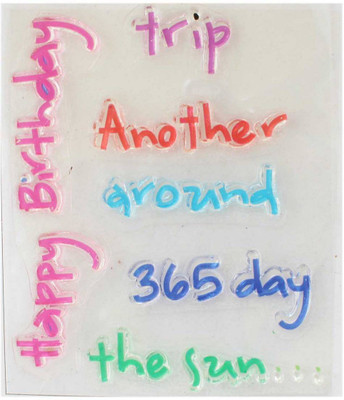 Happy Birthday
trip
Another
around
365 day
the sun...